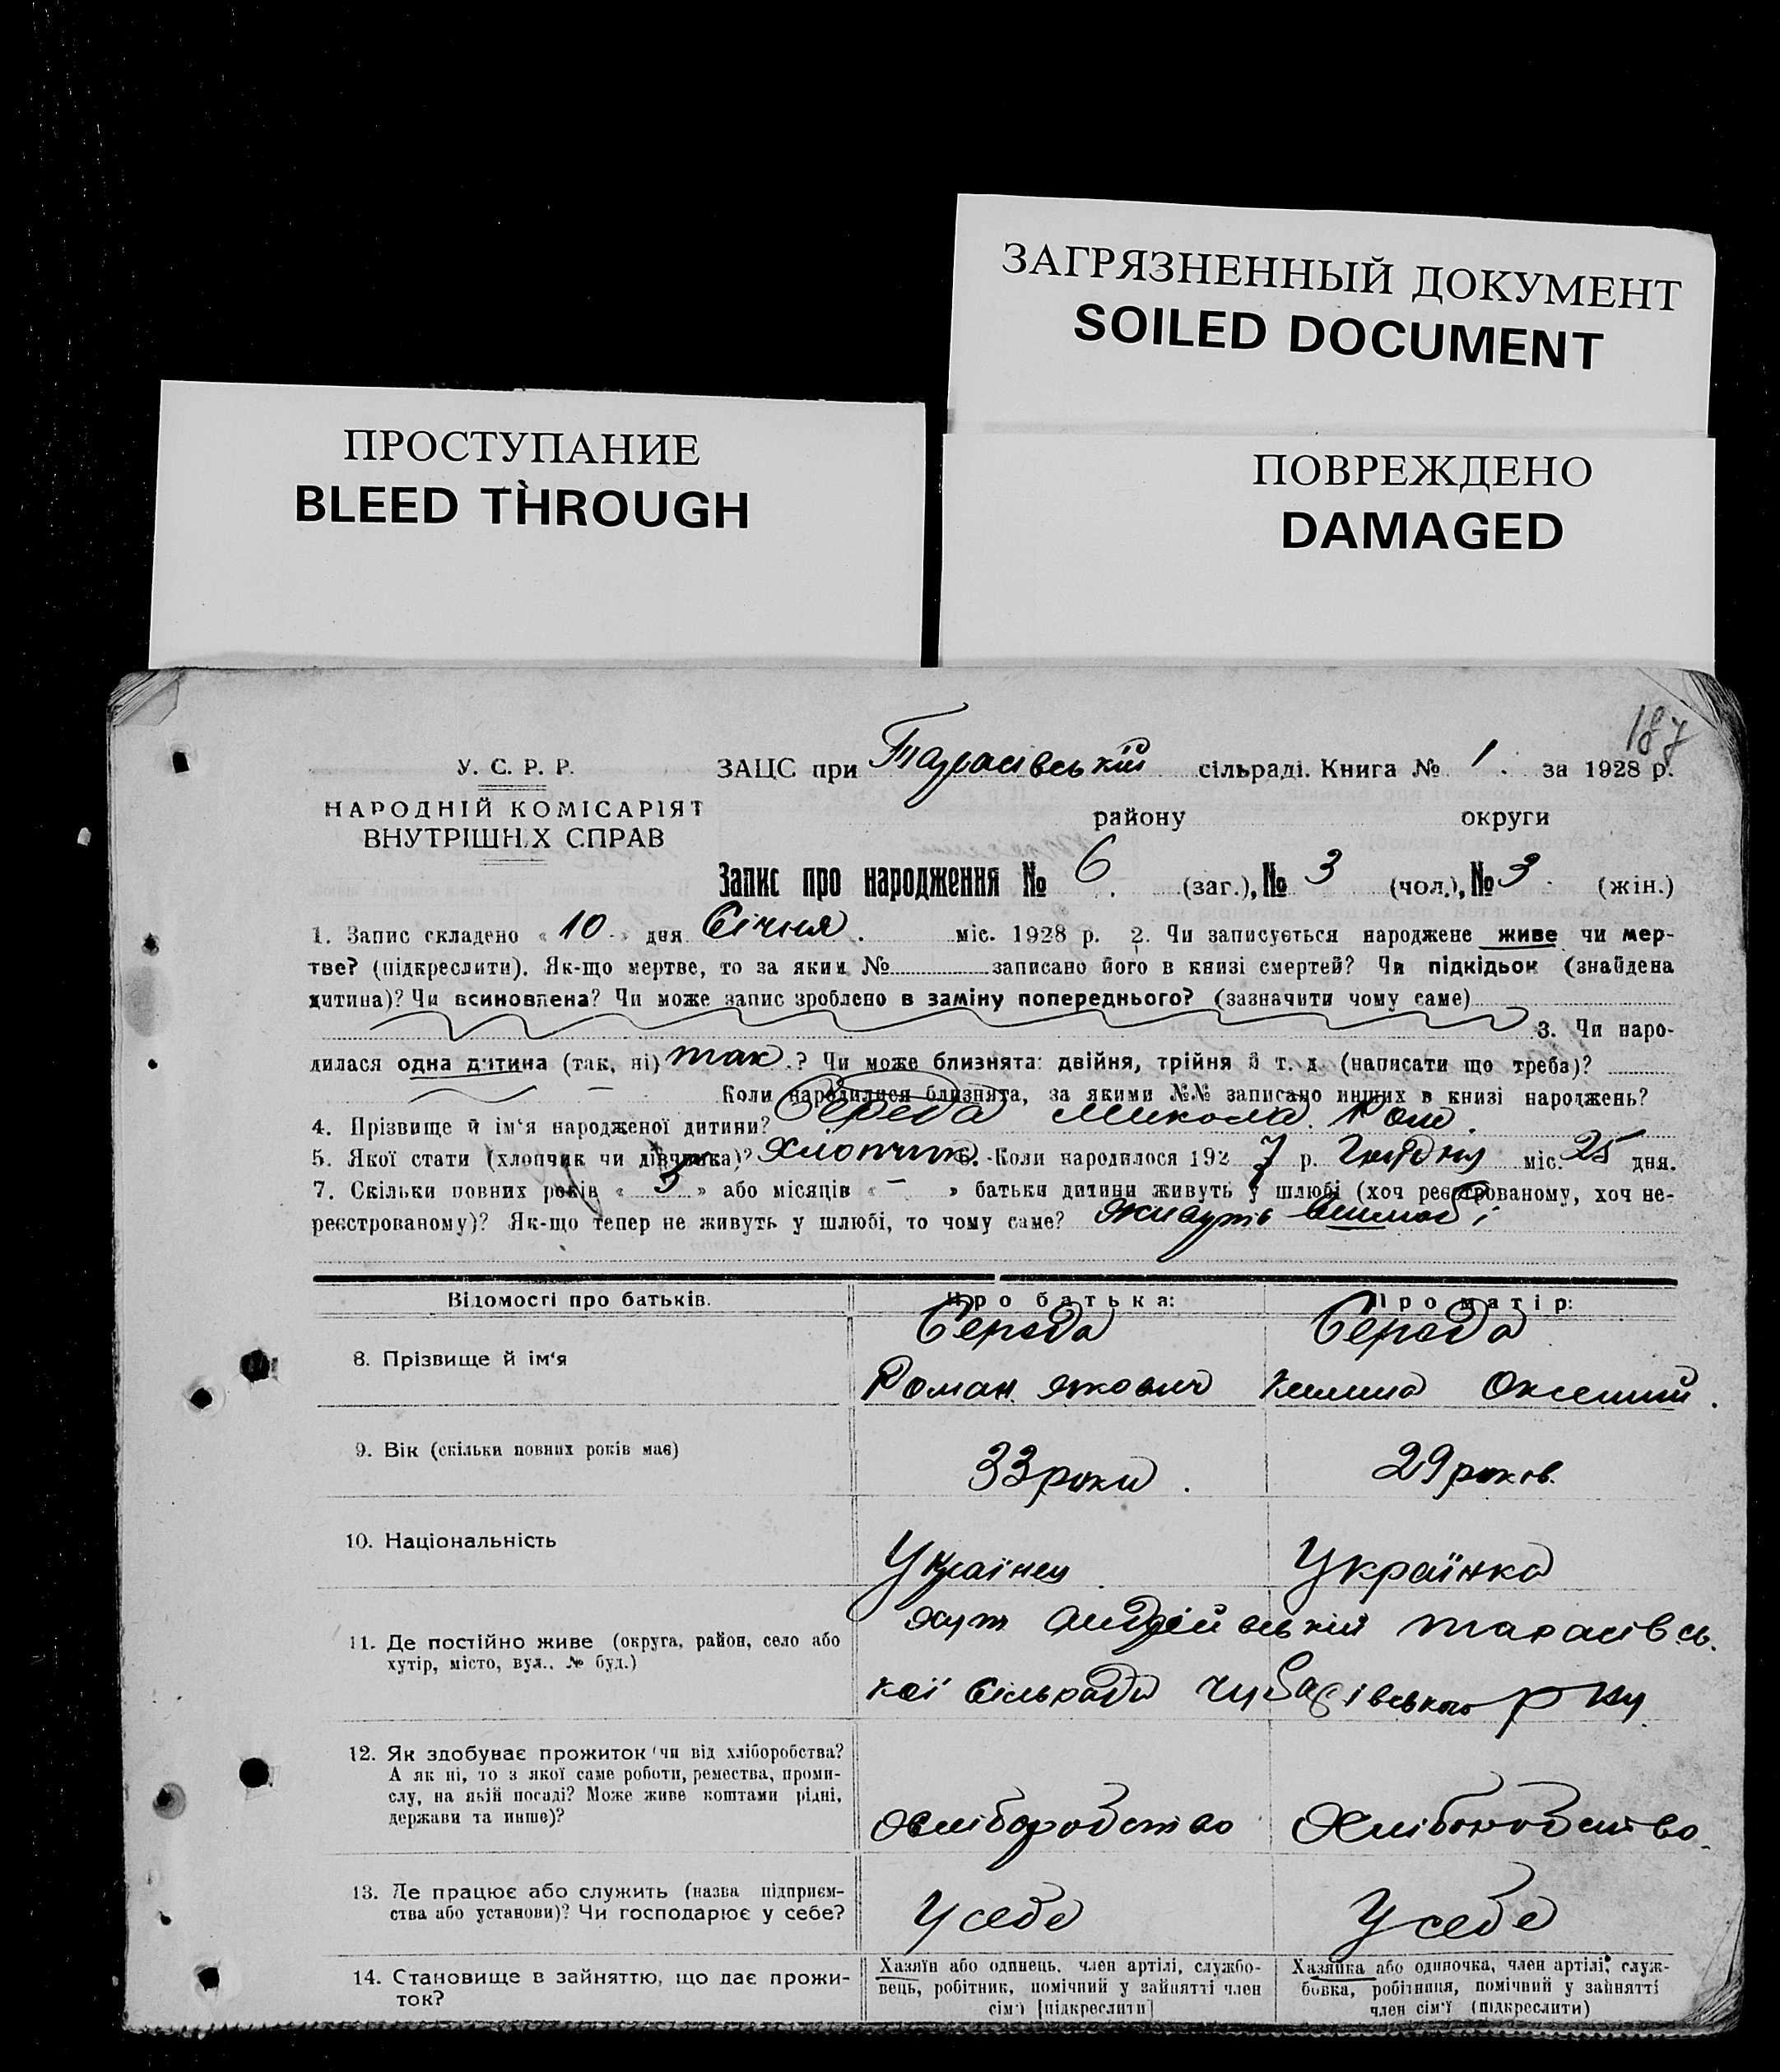 ЗАГРЯЗНЕННЫЙ ДОКУМЕНТ
SOILED DOCUMENT
ПРОСТУПАНИЕ
BLEED THROUGH
ПОВРЕЖДЕНО
DAMAGED
187
У. С. Р. Р.
НАРОДНІЙ КОМІСАРІЯТ
ВНУТРІШНІХ СПРАВ
ЗАЦС при Тарасівській сільраді. Книга № 1. за 1928 р.
району округи
Запис про народження № 6. (заг.), № 3 (чол.), № 3. (жін.)
1. Запис складено « 10 » дня Січня. міс. 1928 р. 2. Чи записується народжене живе чи мер-
тве? (підкреслити). Як-що мертве, то за яким № записано його в книзі смертей? Чи підкідьок (знайдена
дитина)? Чи всиновлена? Чи може запис зроблено в заміну попереднього? (зазначити чому саме)
3. Чи наро-
дилася одна дитина (так, ні) так.? Чи може близнята: двійня, трійня й т. д. (написати що треба)?
Коли народилися близнята, за якими №№ записано инших в книзі народжень?
4. Прізвище й ім'я народженої дитини? Середа Микола. Ром.
5. Якої стати (хлопчик чи дівчинка)? Хлопчик 6. Коли народилося 1927 р. Грудня міс. 25 дня.
7. Скільки повних років « 3 » або місяців « – » батьки дитини живуть у шлюбі (хоч реєстрованому, хоч не-
реєстрованому)? Як-що тепер не живуть у шлюбі, то чому саме? живуть вшлюбі
Відомості про батьків. Про батька: Про матір:
Середа Середа
8. Прізвище й ім'я
Роман Якович
9. Вік (скільки повних років має) 33 роки. 29 років.
10. Національність Українец Українка
11. Де постійно живе (округа, район, село або
хутір, місто, вул., № буд.)
хут Андріївський Тарасівсь.
кої сільради Чубарівського р ну
12. Як здобуває прожиток чи від хліборобства?
А як ні, то з якої саме роботи, ремества, проми-
слу, на якій посаді? Може живе коштами рідні,
держави та инше)?
Хліборобство Хліборобство.
13. Де працює або служить (назва підприєм-
ства або установи)? Чи господарює у себе?
У себе У себе
14. Становище в зайняттю, що дає прожи-
ток?
Хазяїн або одинець, член артілі, службо-
вець, робітник, помічний у зайнятті член
сім'ї [підкреслити]
Хазяйка або одиночка, член артілі, служ-
бовка, робітниця, помічний у зайнятті
член сім'ї (підкреслити)